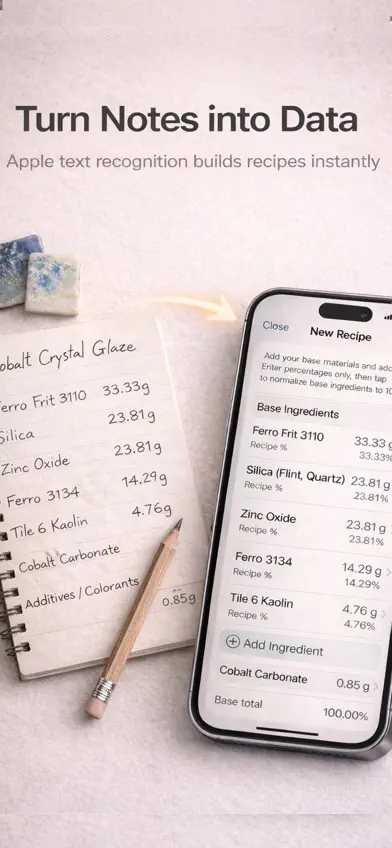 Turn Notes into Data
Apple text recognition builds recipes instantly
obalt Crystal Glaze
erro Frit 3110 33.33g
Silica 23.81g
Zinc Oxide 23.81g
Ferro 3134 14.29g
Tile 6 Kaolin 4.76g
Cobalt Carbonate
Additives / Colorants 0.85g
Close New Recipe
Add your base materials and add
Enter percentages only, then tap
to normalize base ingredients to 10
Base Ingredients
Ferro Frit 3110 33.33 g
33.33%
Silica (Flint, Quartz) 23.81 g
Recipe % 23.81%
Zinc Oxide 23.81 g
Recipe % 23.81%
Ferro 3134 14.29 g
Recipe % 14.29%
Tile 6 Kaolin 4.76 g
Recipe % 4.76%
Add Ingredient
Cobalt Carbonate 0.85 g
Base total 100.00%